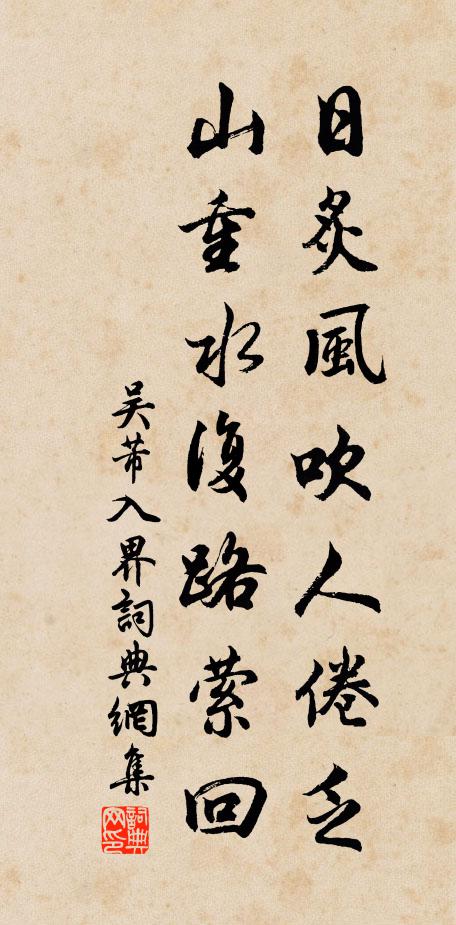 日炙風吹人倦乏
山重水復路縈回
吴芾入界詞典網集
詞典網印